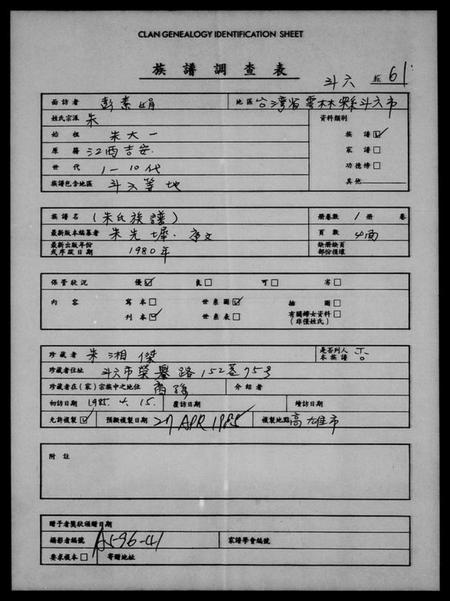 CLAN GENEALOGY IDENTIFICATION SHEET
族譜調查表
斗六 61
面訪者 彭素娟 地區 台灣省雲林縣斗六市
姓氏宗派 朱 資料類別
始祖 朱大一 族譜☑
原籍 江西吉安 家譜□
世代 1-10代 功德榜□
族譜包含地區 斗六等地 其他
族譜名 (朱氏族譜) 冊卷數 1 冊 卷
最新版本編纂者 朱先墀. 頁數 4面
最新出版年份或序跋日期 1980年 缺冊缺頁部份損壞
保管狀況 優☑ 良□ 可□ 劣□
內容 寫本□ 世系圖☑ 插圖□
刊本☑ 世系表□ 有關婦女資料□ (非僅姓氏)
珍藏者 朱湘傑 是否列入本族譜
珍藏者住址 斗六市榮譽路152巷75号
珍藏者在(家)宗族中之地位 裔孫 介紹者
初訪日期 1985.4.15. 覆訪日期 續訪日期
允許複製☑ 預擬複製日期 27 APR 1985 複製地點 高雄市
附註
贈予者獎狀頒贈日期
攝影者編號 A596-41 家譜學會編號
要求複本□ 寄贈地址